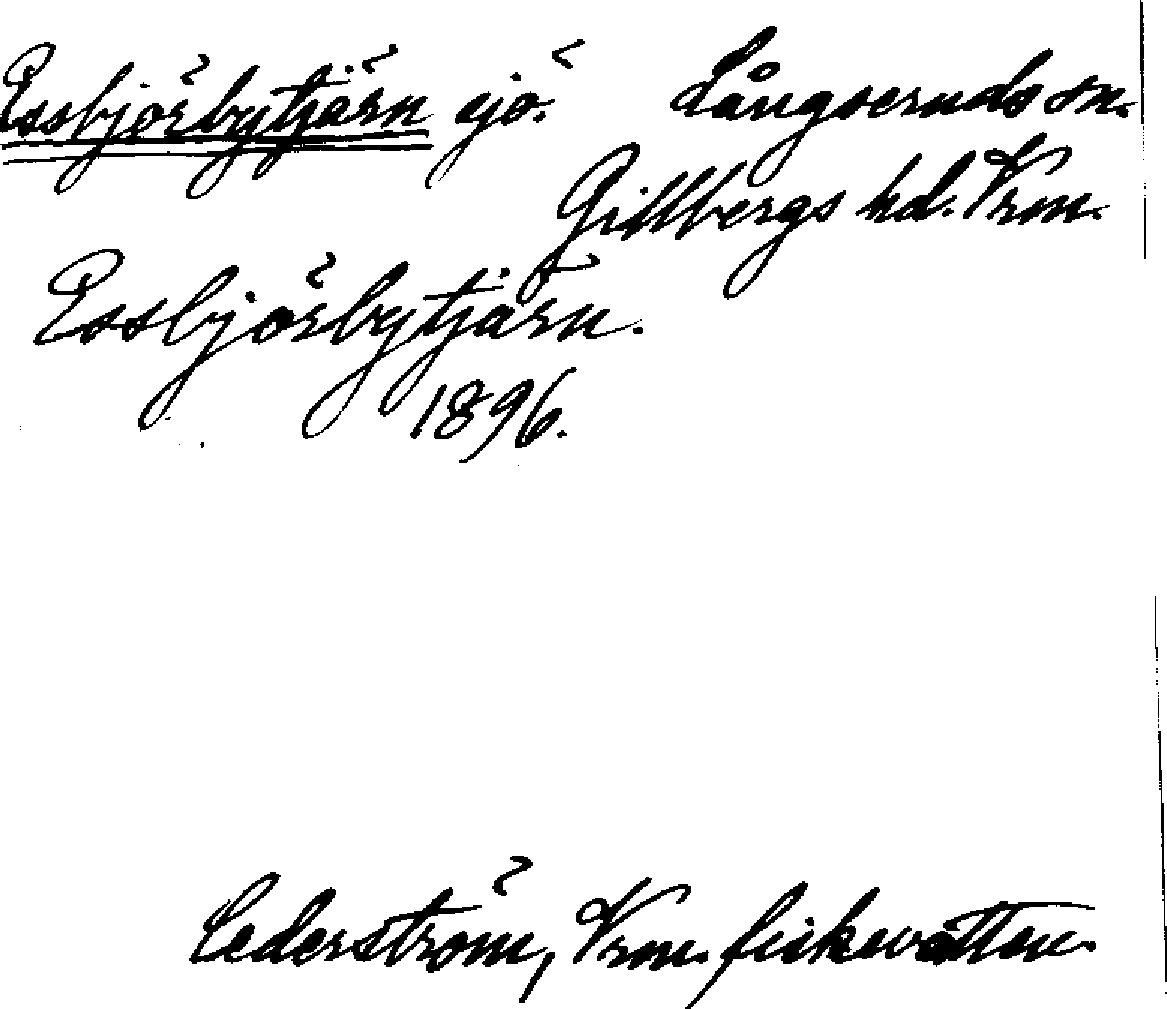 Essbjörbytjärn sjö. Långseruds sn.
Gillbergs hd. Vrm.
Essbjörbytjärn.
1896.
Cederström, Vrm. fiskevatten.